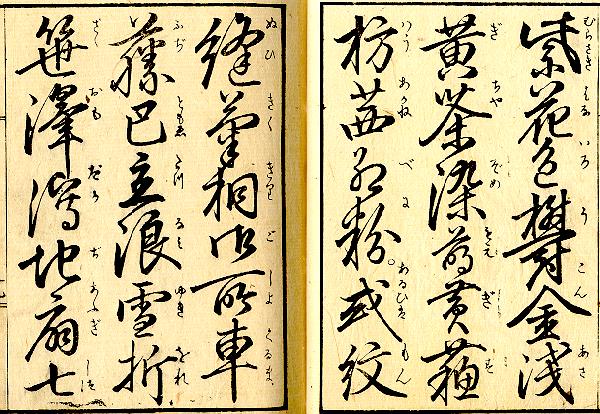 紫花色欝金浅
むらさき はな いろ う こん あさ
黄茶染萌黄蘓
ぎ ちや ぞめ もえ ぎ す
枋茜紅粉。或紋
はう あかね べに あるひは もん
縫菊桐御所車
ぬひ きく きり ご しよ くるま
藤巴立浪雪折
ふぢ ともゑ たつ なミ ゆき をれ
笹澤瀉地扇七
ざゝ おも だか ぢ あふぎ